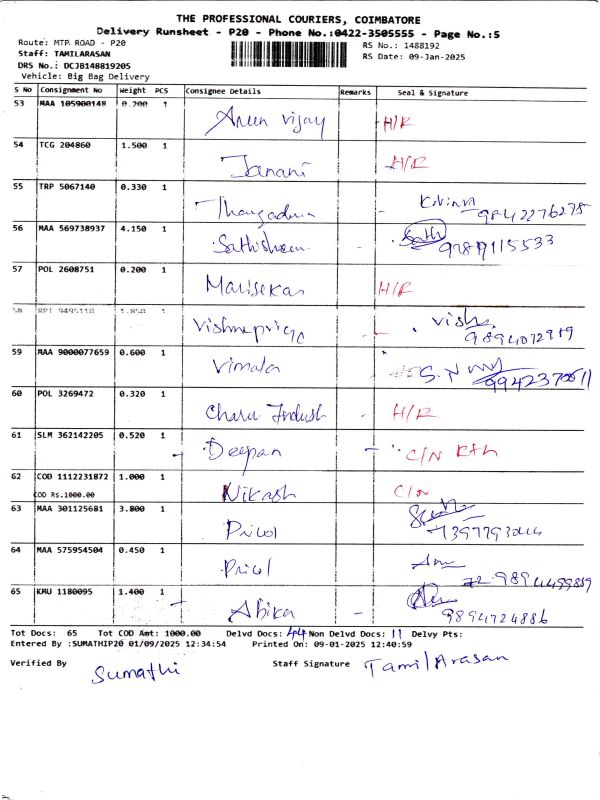 THE PROFESSIONAL COURIERS, COIMBATORE
Delivery Runsheet - P20 - Phone No.:0422-3505555 - Page No.:5
Route: MTP. ROAD - P20
RS No.: 1488192
Staff: TAMILARASAN
RS Date: 09-Jan-2025
DRS No.: DCJB148819205
Vehicle: Big Bag Delivery
S No Consignment No Weight PCS Consignee Details Remarks Seal & Signature
53 MAA 105900148 0.200 1 Arun Vijay H/R
54 TCG 204860 1.500 1 Janani H/R
55 TRP 5067140 0.330 1 9842276275
56 MAA 569738937 4.150 1 Sath
57 POL 2608751 0.200 1 Marisekar H/R
58 1 Vishnupriya Vishu
59 MAA 9000077659 0.600 1 Vimala
60 POL 3269472 0.320 1 H/R
61 SLM 362142205 0.520 1 Deepan C/N
62 COD 1112231872 1.000 1 Nikash C/N
COD Rs.1000.00
63 MAA 301125681 3.800 1 Pricol
64 MAA 575954504 0.450 1 Pricol
65 KMU 1180095 1.400 1 Abika 9894724886
Tot Docs: 65 Tot COD Amt: 1000.00 Delvd Docs: 44 Non Delvd Docs: 11 Delvy Pts:
Entered By :SUMATHIP20 01/09/2025 12:34:54 Printed On: 09-01-2025 12:40:59
Verified By Sumathi Staff Signature TamilArasan